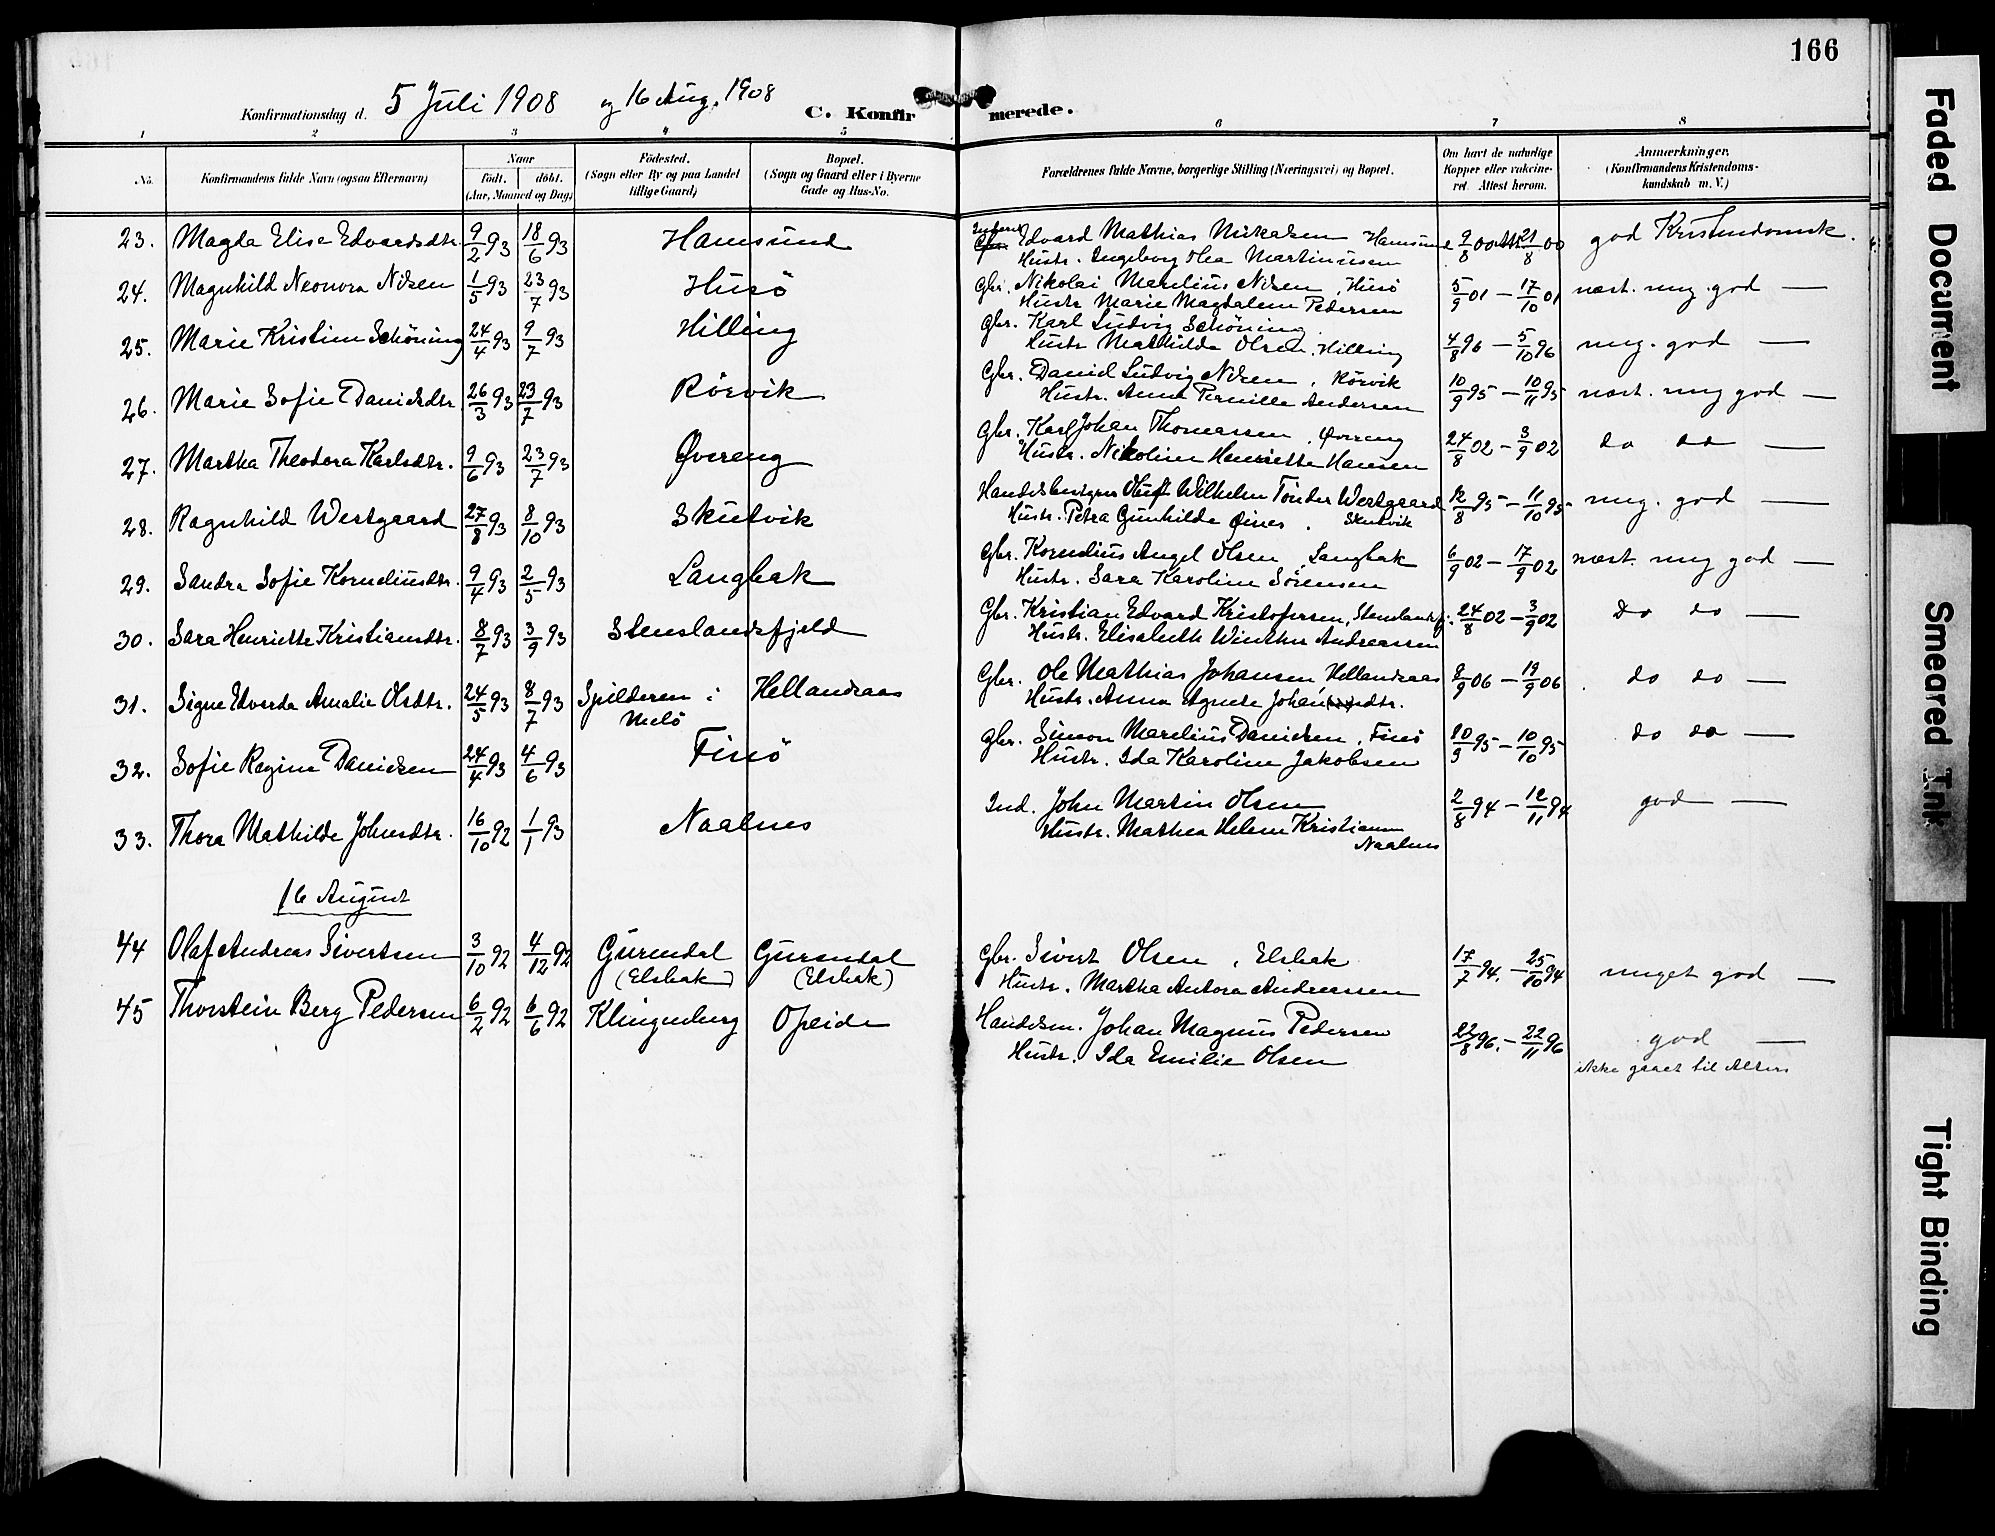 166
Konfirmationsdag d. 5 Juli 1908 og 16 Aug. 1908
C. Konfirmerede.
1 2 3 4 5 6 7 8
No. Konfirmandens fulde Navn (ogsaa Efternavn) Naar født. døbt. (Aar, Maaned og Dag) Fødested. (Sogn eller By og paa Landet tillige Gaard) Bopæl. (Sogn og Gaard eller i Byerne Gade og Hus-No. Forældrenes fulde Navne, borgerlige Stilling (Næringsvei) og Bopæl. Om havt de naturlige Kopper eller vakcineret. Attest herom. Anmærkninger. (Konfirmandens Kristendomskundskab m. V.)
23. Magda Elise Edvardsdtr. 9/2 93 18/6 93 Hamsund Edvard Mathias Hamsund 9/8 00 Att. 21/8 00 god Kristendomsk.
Hustr. Ingeborg Olea Martinusen
24. Magnhild Neonora Nilsen 1/5 93 23/7 93 Husö Gbr. Nikolai Marelius Nilsen, Husö 5/9 01 — 17/10 01 næst. meg. god —
Hustr. Marie Magdalena Pedersen
25. Marie Kristine Schöning 24/4 93 9/7 93 Hilling Gbr. Karl Ludvig Schöning 4/8 96 — 5/10 96 meg. god —
Hustr. Mathilde Olsen, Hilling
26. Marie Sofie Danielsdtr 26/3 93 23/7 93 Rörvik Gbr. Daniel Ludvig Nilsen, Rörvik 10/9 95 — 10/11 95 næst. meg god —
Hustr. Anna Pernille Andersen
27. Martha Theodora Karlsdtr. 9/6 93 23/7 93 Øvereng Gbr. Karl Johan Thomassen, Øvereng 24/8 02 — 3/9 02 do do —
Hustr. Nikoline Henriette Hansen
28. Ragnhild Westgaard 27/8 93 8/10 93 Skutvik Handelsbestyrer Oluft Wilhelm Tønder Westgaard 12/8 95 — 11/10 95 meg. god —
Hustr. Petra Gunhilde Øines, Skutvik
29. Sandra Sofie Korneliusdtr. 9/4 93 2/5 93 Langbak Gbr. Kornelius Angel Olsen, Langbak 6/9 02 — 17/9 02 næst. meg god —
Hustr. Sara Karoline Sørensen
30. Sara Henriette Kristiansdtr. 8/7 93 3/9 93 Stenslandsfjeld Gbr. Kristian Edvard Kristofersen, Stenslandsfj. 24/8 02 — 3/9 02 do do —
Hustr. Elisabeth Winther Andreassen
31. Signe Edvarda Amalie Olsdtr. 24/5 93 8/7 93 Spilderen i Melö Hellandsaas Gbr. Ole Mathias Johansen Hellandsaas 8/9 06 — 19/9 06 do do —
Hustr. Anna Agnete
32. Sofie Regine Danielsen 24/4 93 4/6 93 Finö Gbr. Simon Marelius Danielsen, Finö 10/9 95 — 10/10 95 do do —
Hustr. Ida Karoline Jakobsen
33. Thora Mathilde Johnsdtr. 16/10 92 1/1 93 Naalnes Ind. John Martin Olsen 2/8 94 — 12/11 94 god —
Hustr. Mathea Helene Kristiansen
Naalnes
16 August
44 Olaf Andreas Sivertsen 3/10 92 4/12 92 Gurendal (Elsbak) Gurendal (Elsbak) Gbr. Sivert Olsen, Elsbak 17/7 94. — 25/10 94 meget god —
Hustr. Martha Antora Andreassen
45 Thorstein Berg Pedersen 6/2 92 6/6 92 Klingenberg Opeide Handelsm. Johan Magnus Pedersen 22/8 96. — 22/11 96 god —
Hustr. Ida Emilie Olsen ikke gaaet til Alters
Faded Document
Smeared Ink
Tight Binding